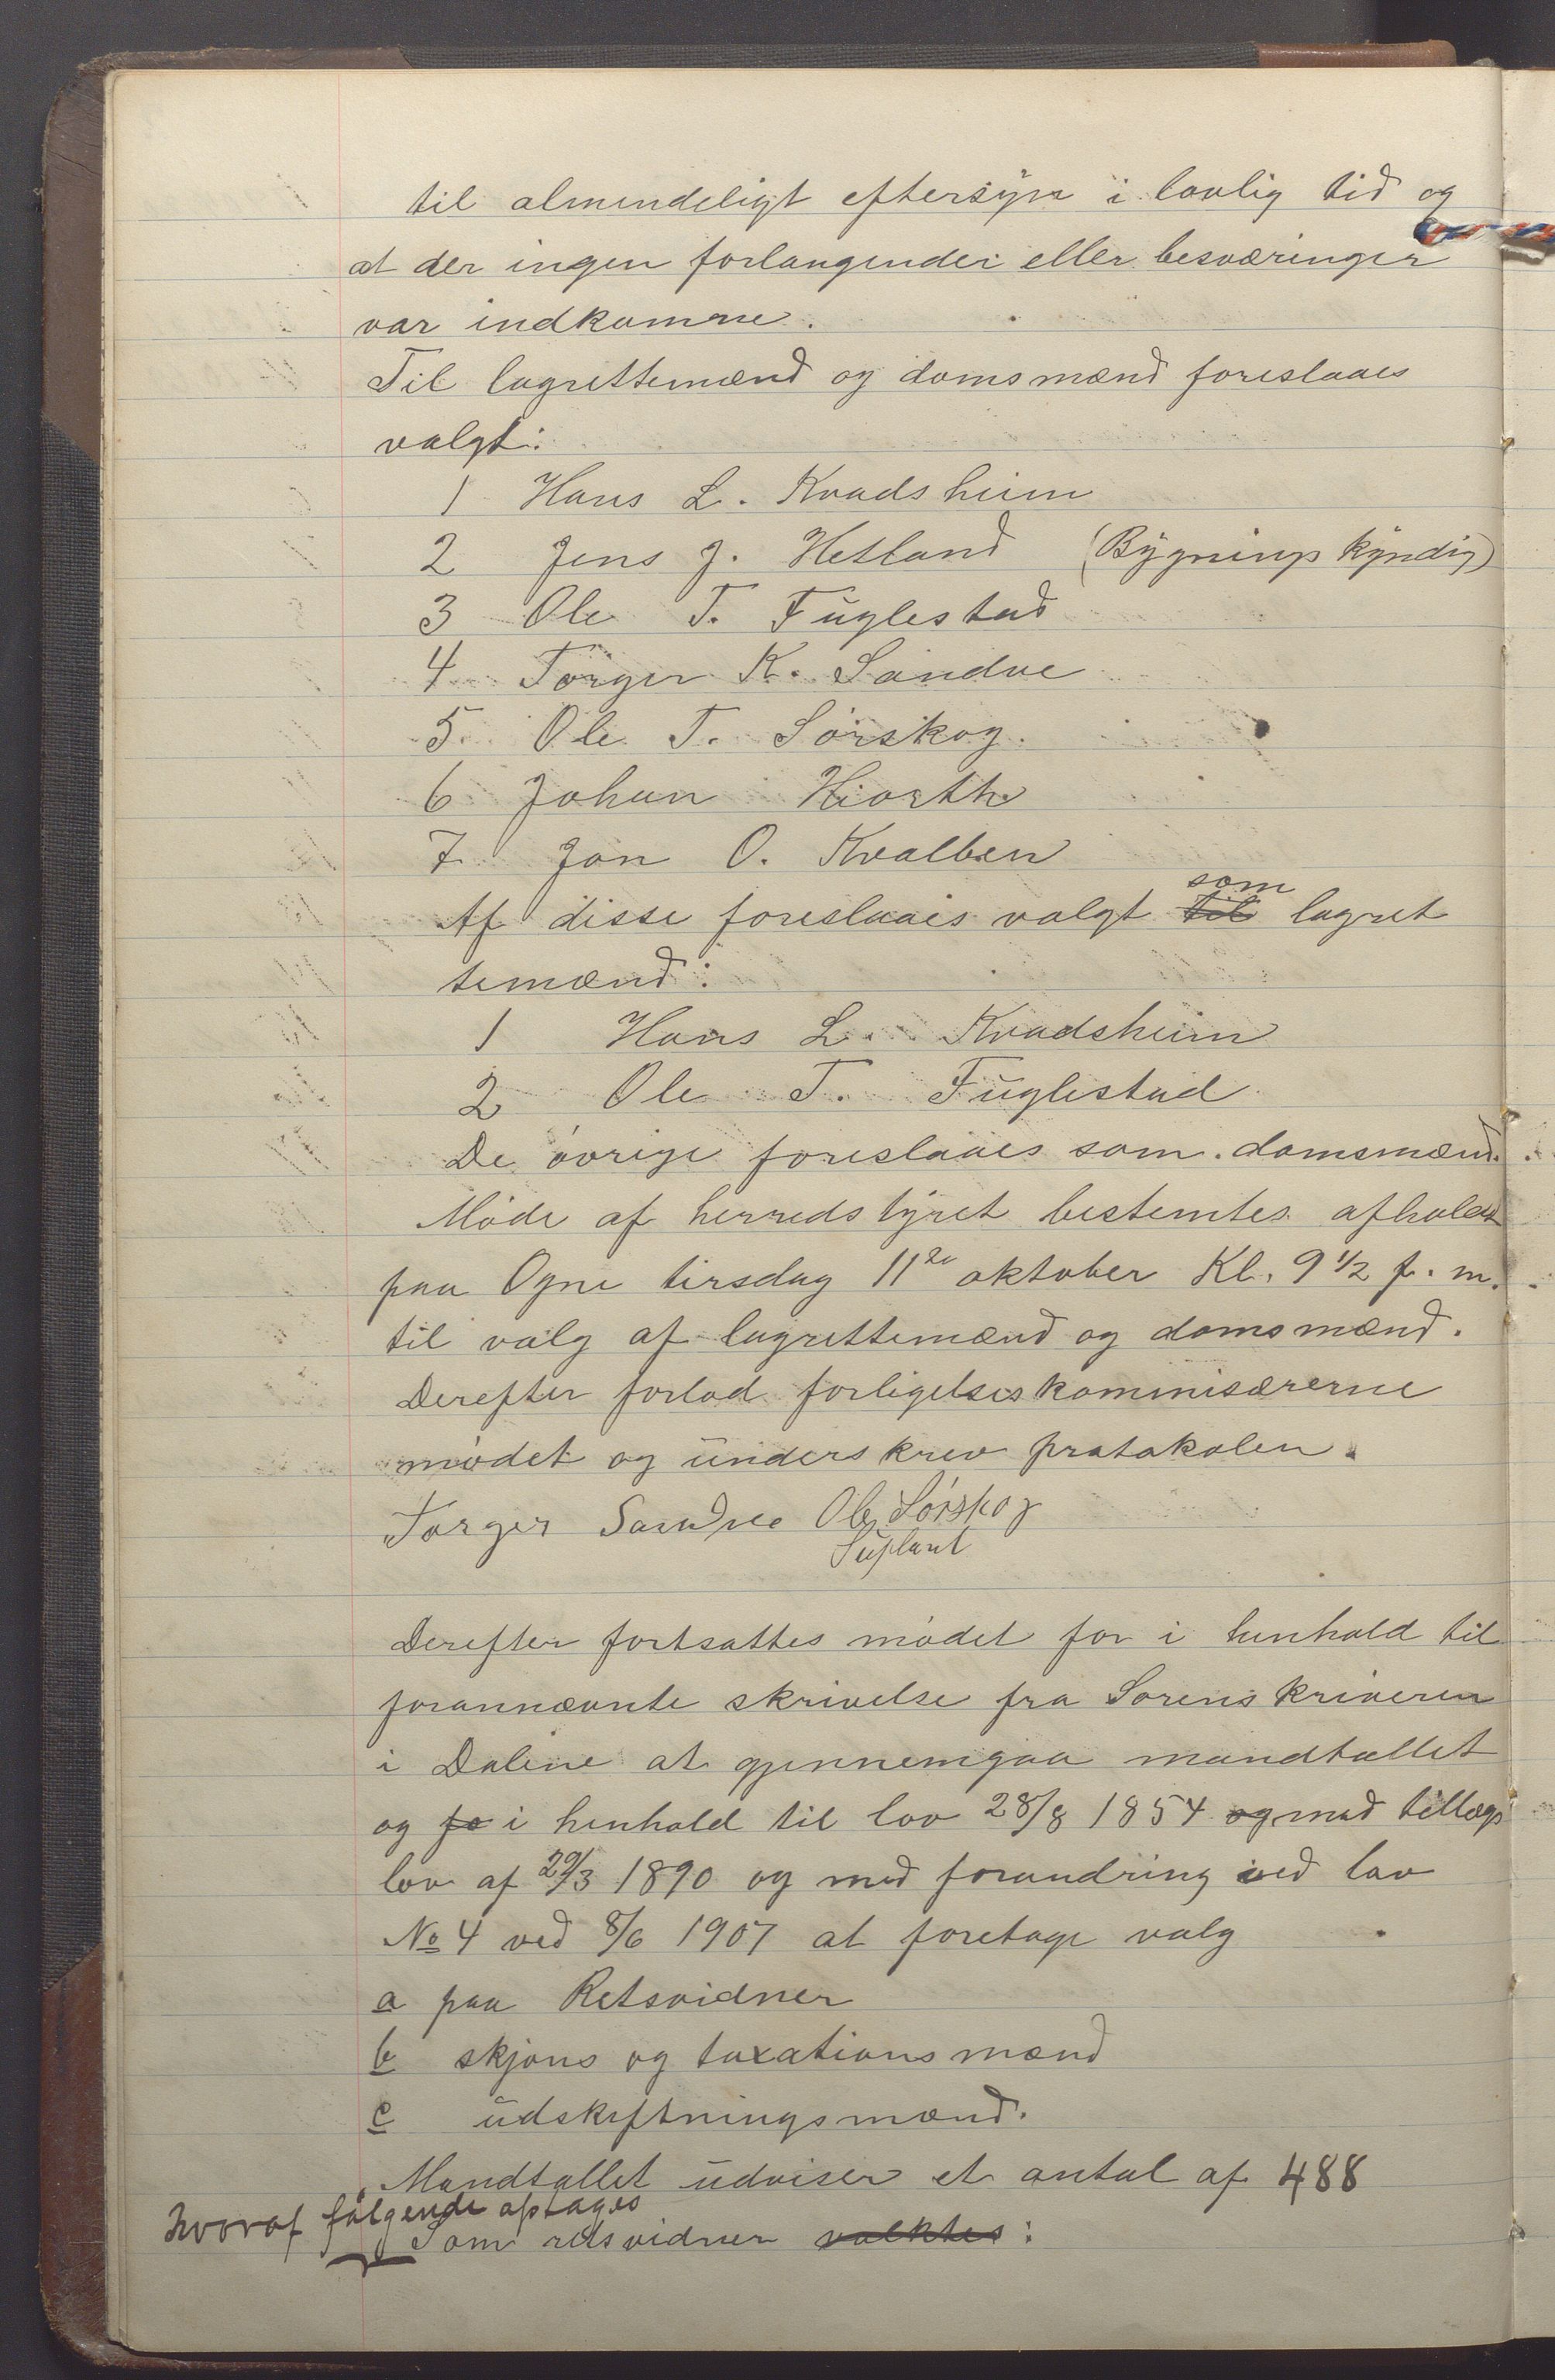 til almindeligt eftersyn i lovlig tid og
at der ingen forlangender eller besværinger
var indkomne.
Til lagrettemænd og domsmænd foreslaaes
valgt:
1 Hans L. Kvadsheim
2 Jens J. Hetland (Bygningskyndig)
3 Ole T. Fuglestad
4 Torger K. Sandve
5 Ole T. Sørskog.
6 Johan Hiorth
7 Jon O. Kvalben
Af disse foreslaaes valgt til som lagret
temænd:
1 Hans L. Kvadsheim
2 Ole T. Fuglestad
De øvrige foreslaaes som domsmænd.
Møde af herredstyret bestemtes afholdt
paa Ogne tirsdag 11te oktober Kl. 9 1/2 f. m.
til valg af lagrettemænd og domsmænd.
Derefter forlod forligelseskommisærerne
mødet og underskrev protokolen.
Torger Sandve Ole Sørskog
Suplant
Derefter fortsattes mødet for i henhold til
forannævnte skrivelse fra Sorenskriveren
i Dalene at gjennemgaa mandtallet
og fo i henhold til lov 28/8 1854 og med tillægs
lov af 29/3 1890 og med forandring ved lov
No 4 ved 8/6 1907 at foretage valg
a paa Retsvidner
b skjøns og taxationsmænd
c udskiftningsmænd.
Mandtallet udviser et antal af 488
hvoraf følgende optages
Som retsvidner valktes: